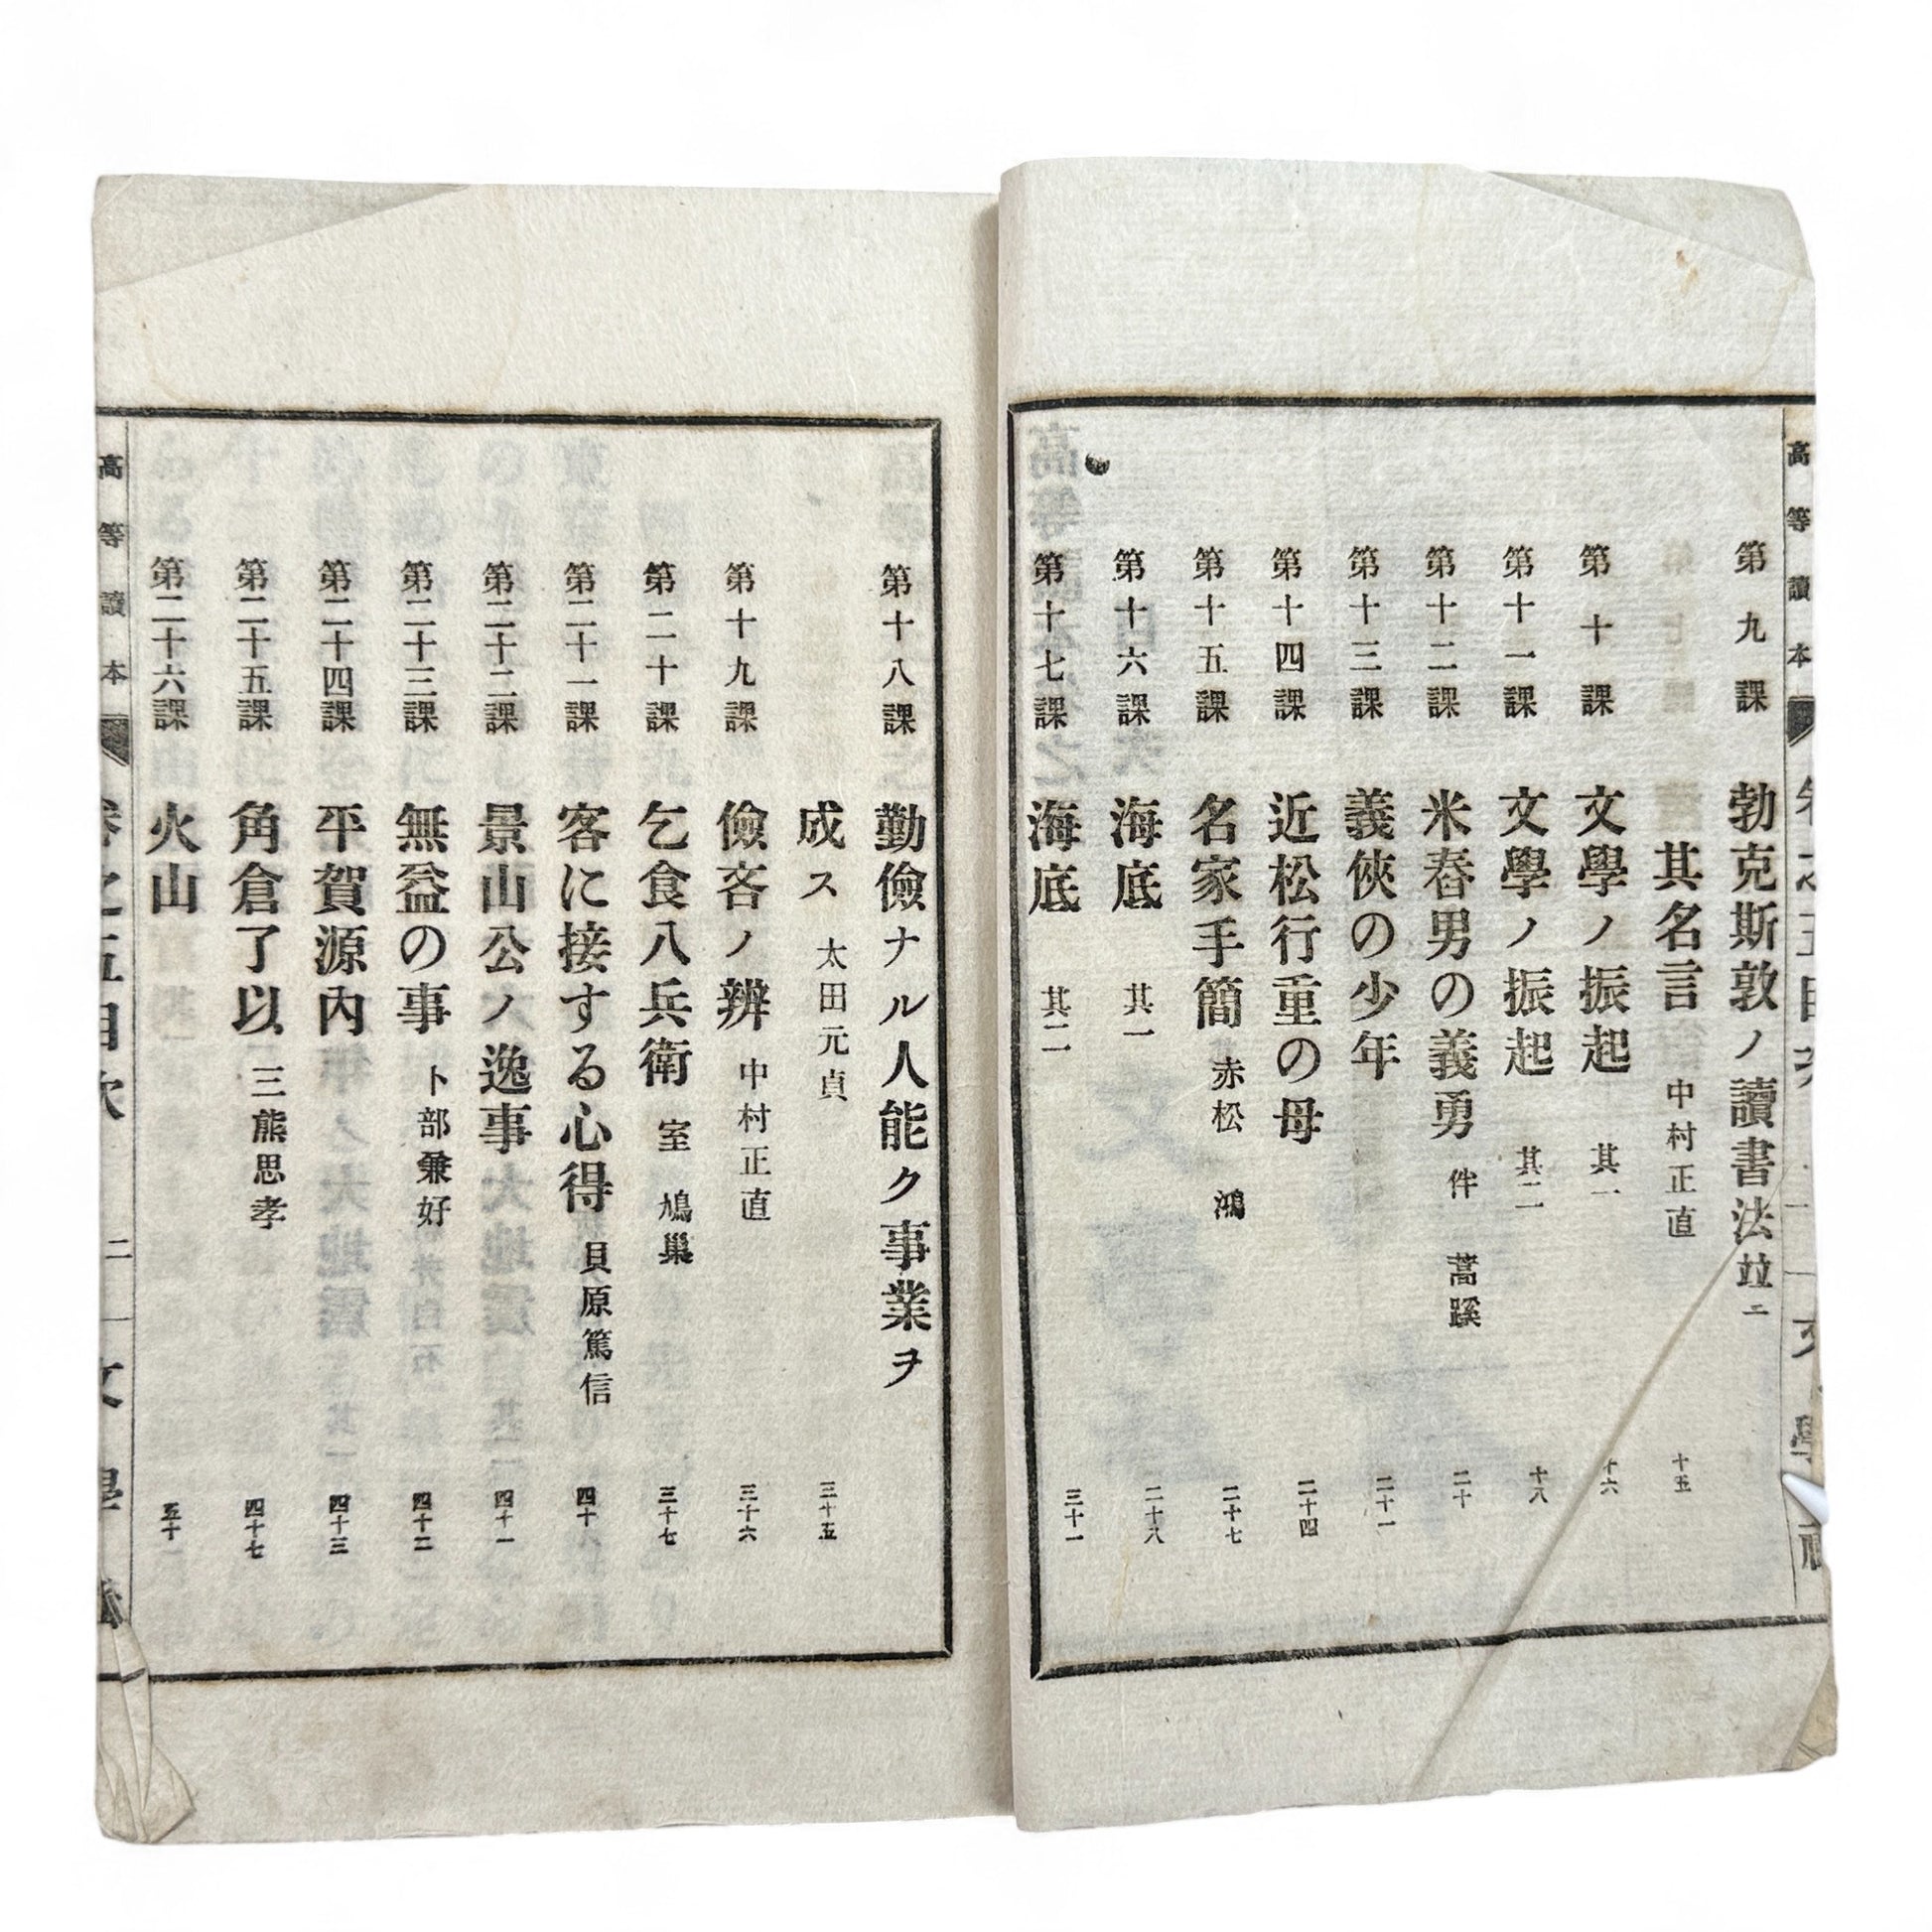 高等讀本
第九課 勃克斯敦ノ讀書法竝ニ
其名言 中村正直 十五
第十課 文學ノ振起 其一 十六
第十一課 文學ノ振起 其二 十八
第十二課 米舂男の義勇 伴 蒿蹊 二十
第十三課 義俠の少年 二十一
第十四課 近松行重の母 二十四
第十五課 名家手簡 赤松 鴻 二十七
第十六課 海底 其一 二十八
第十七課 海底 其二 三十一
第十八課 勤儉ナル人能ク事業ヲ
成ス 太田元貞 三十五
第十九課 儉吝ノ辨 中村正直 三十六
第二十課 乞食八兵衛 室 鳩巢 三十七
第二十一課 客に接する心得 貝原篤信 四十
第二十二課 景山公ノ逸事 四十一
第二十三課 無益の事 卜部兼好 四十二
第二十四課 平賀源內 四十三
第二十五課 角倉了以 三熊思孝 四十七
第二十六課 火山 五十
高等讀本 卷之五目次 二 文學社